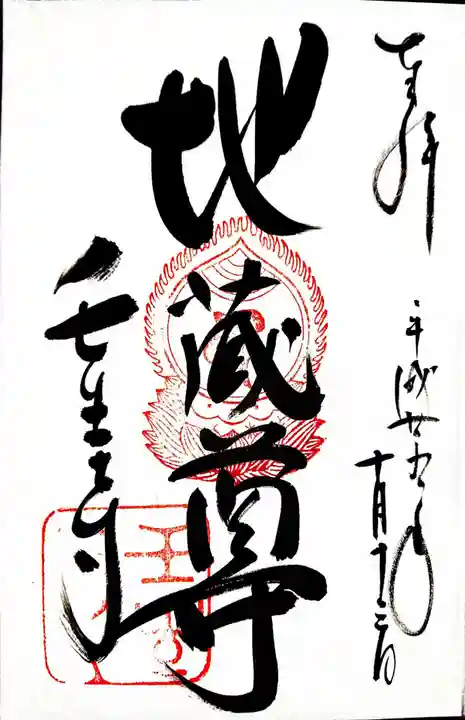 奉拝
平成廿五年
十月十三日
地蔵尊
壬生寺